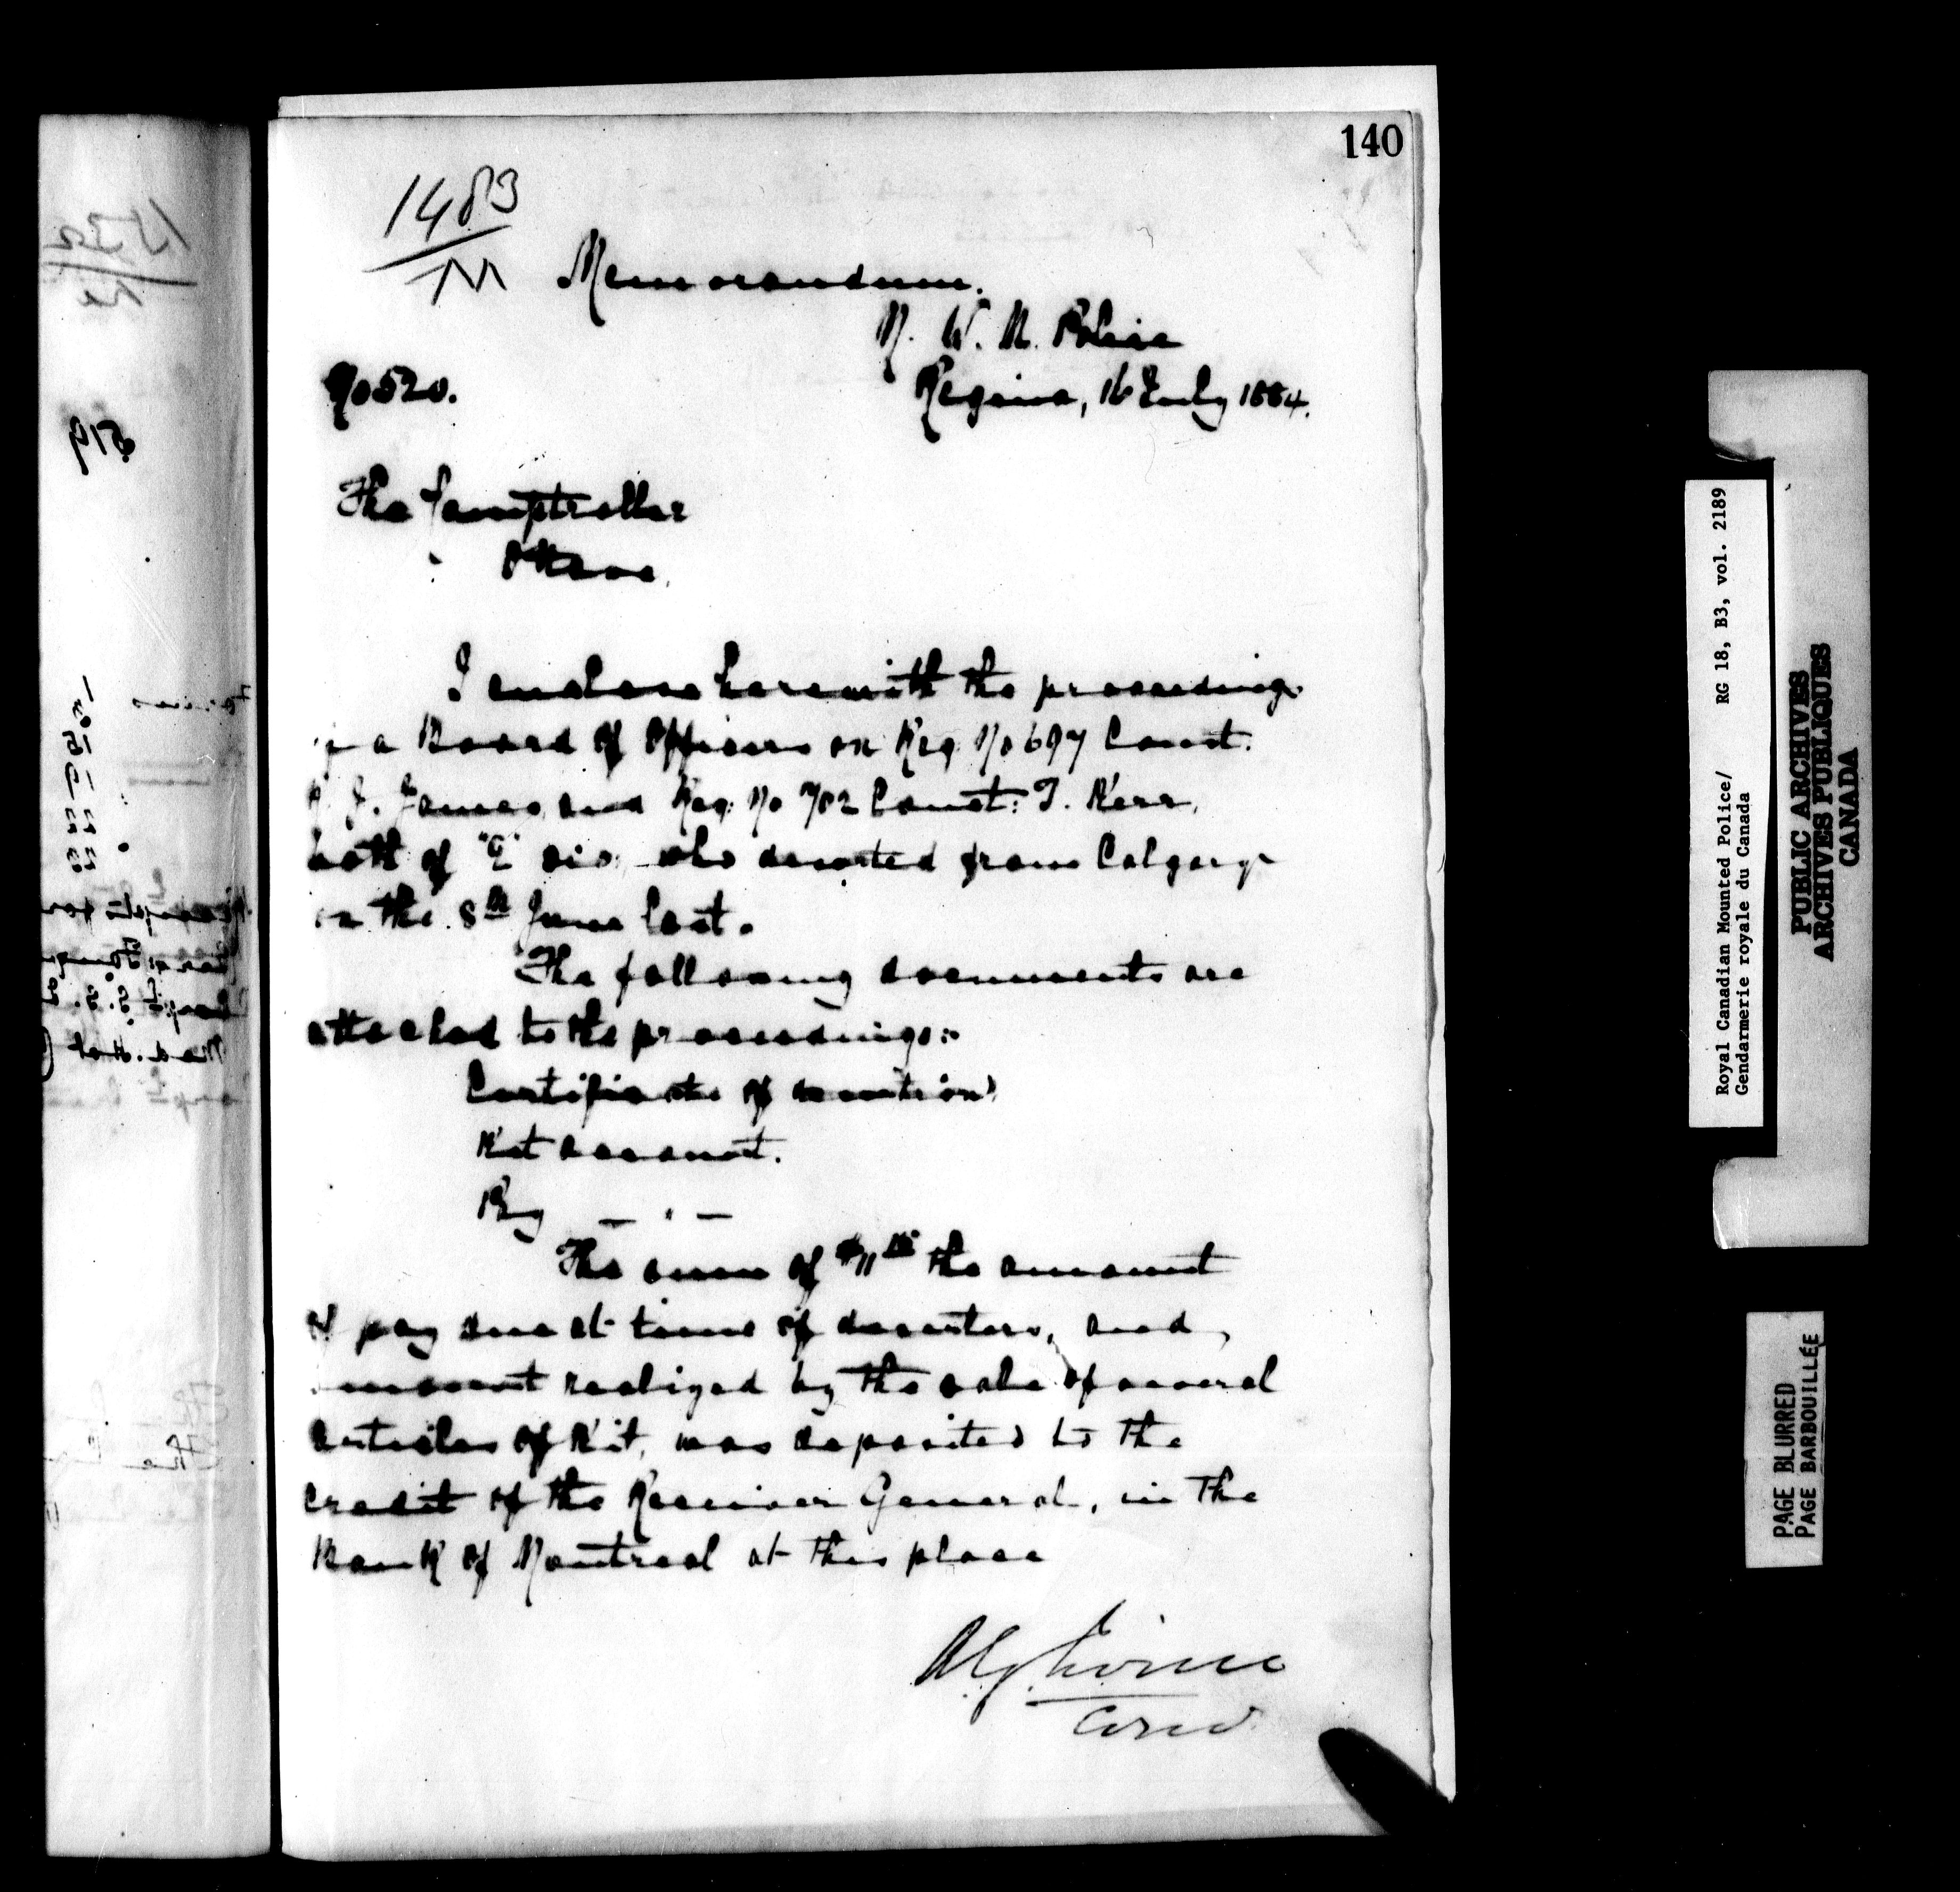 140
1483
M
Memorandum.
N. W. M. Police
No 520.
Regina, 16 July 1884.
The Comptroller
Ottawa,
I enclose herewith the proceedings
of a Board of Officers on Reg. No 697 Const.
J. James, and Reg: No 702 Const: T. Kerr,
both of "C" Div. who deserted from Calgary
on the 8th June last.
The following documents are
attached to the proceedings:-
Certificate of desertion
Kit account.
Pay — " —
The sum of $11 the amount
of pay due at time of desertion, and
amount realized by the sale of several
articles of Kit, was deposited to the
credit of the Receiver General, in the
Bank of Montreal at this place
A G Irvine
Comr
519
Royal Canadian Mounted Police/ RG 18, B3, vol. 2189
Gendarmerie royale du Canada
PUBLIC ARCHIVES
ARCHIVES PUBLIQUES
CANADA
PAGE BLURRED
PAGE BARBOUILLÉE